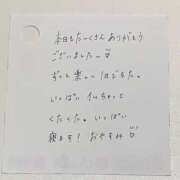 本日もたくさんありがとう
ございましたー♡
ずっと楽しい1日でした。
いっぱい
くたくた。いっぱい
寝ます！おやすみ♡